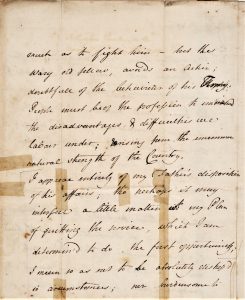 much as to fight him – but the
wary old fellow, avoids an Action;
doubtfull of the behaviour of his Theory.
People must be of the profession to understand
the disadvantages & difficulties we
labour under; arising from the uncommon
natural strength of the Country.
I approve intirely of my Father's disposition
of his affairs; tho' perhaps it may
interfere a little matter with my Plan
of quitting the service, which I am
determin'd to do the first opportunity,
I mean so as not to be absolutely distress'd
in circumstances; nor burdensome to